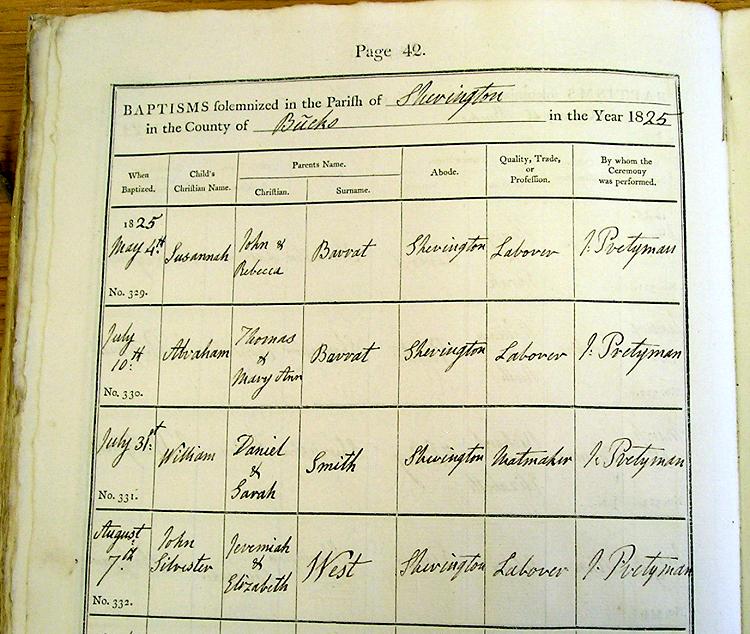 Page 42.
BAPTISMS solemnized in the Parish of Sherington
in the County of Bucks in the Year 1825
When Baptized. Child's Christian Name. Parents Name. Christian. Surname. Abode. Quality, Trade, or Profession. By whom the Ceremony was performed.
1825
May 4th. Susannah John & Rebecca Barrat Sherington Labourer J: Pretyman
No. 329.
July 10th. Abraham Thomas & Mary Ann Barrat Sherington Labourer J: Pretyman
No. 330.
July 31st. William Daniel & Sarah Smith Sherington Matmaker J: Pretyman
No. 331.
August 7th. John Silvester Jeremiah & Elizabeth West Sherington Labourer J: Pretyman
No. 332.